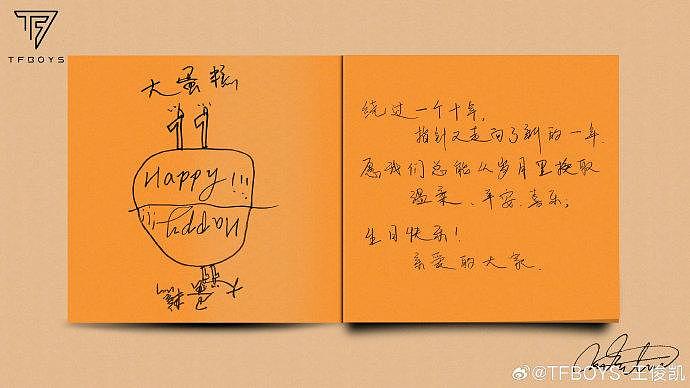 TFBOYS
大蛋糕
Happy!!!
Happy!!!
大蛋糕
绕过一个十年,
指针又走向了新的一年.
愿我们总能从岁月里换取
温柔、平安、喜乐。
生日快乐!
亲爱的大家.
@TFBOYS-王俊凯